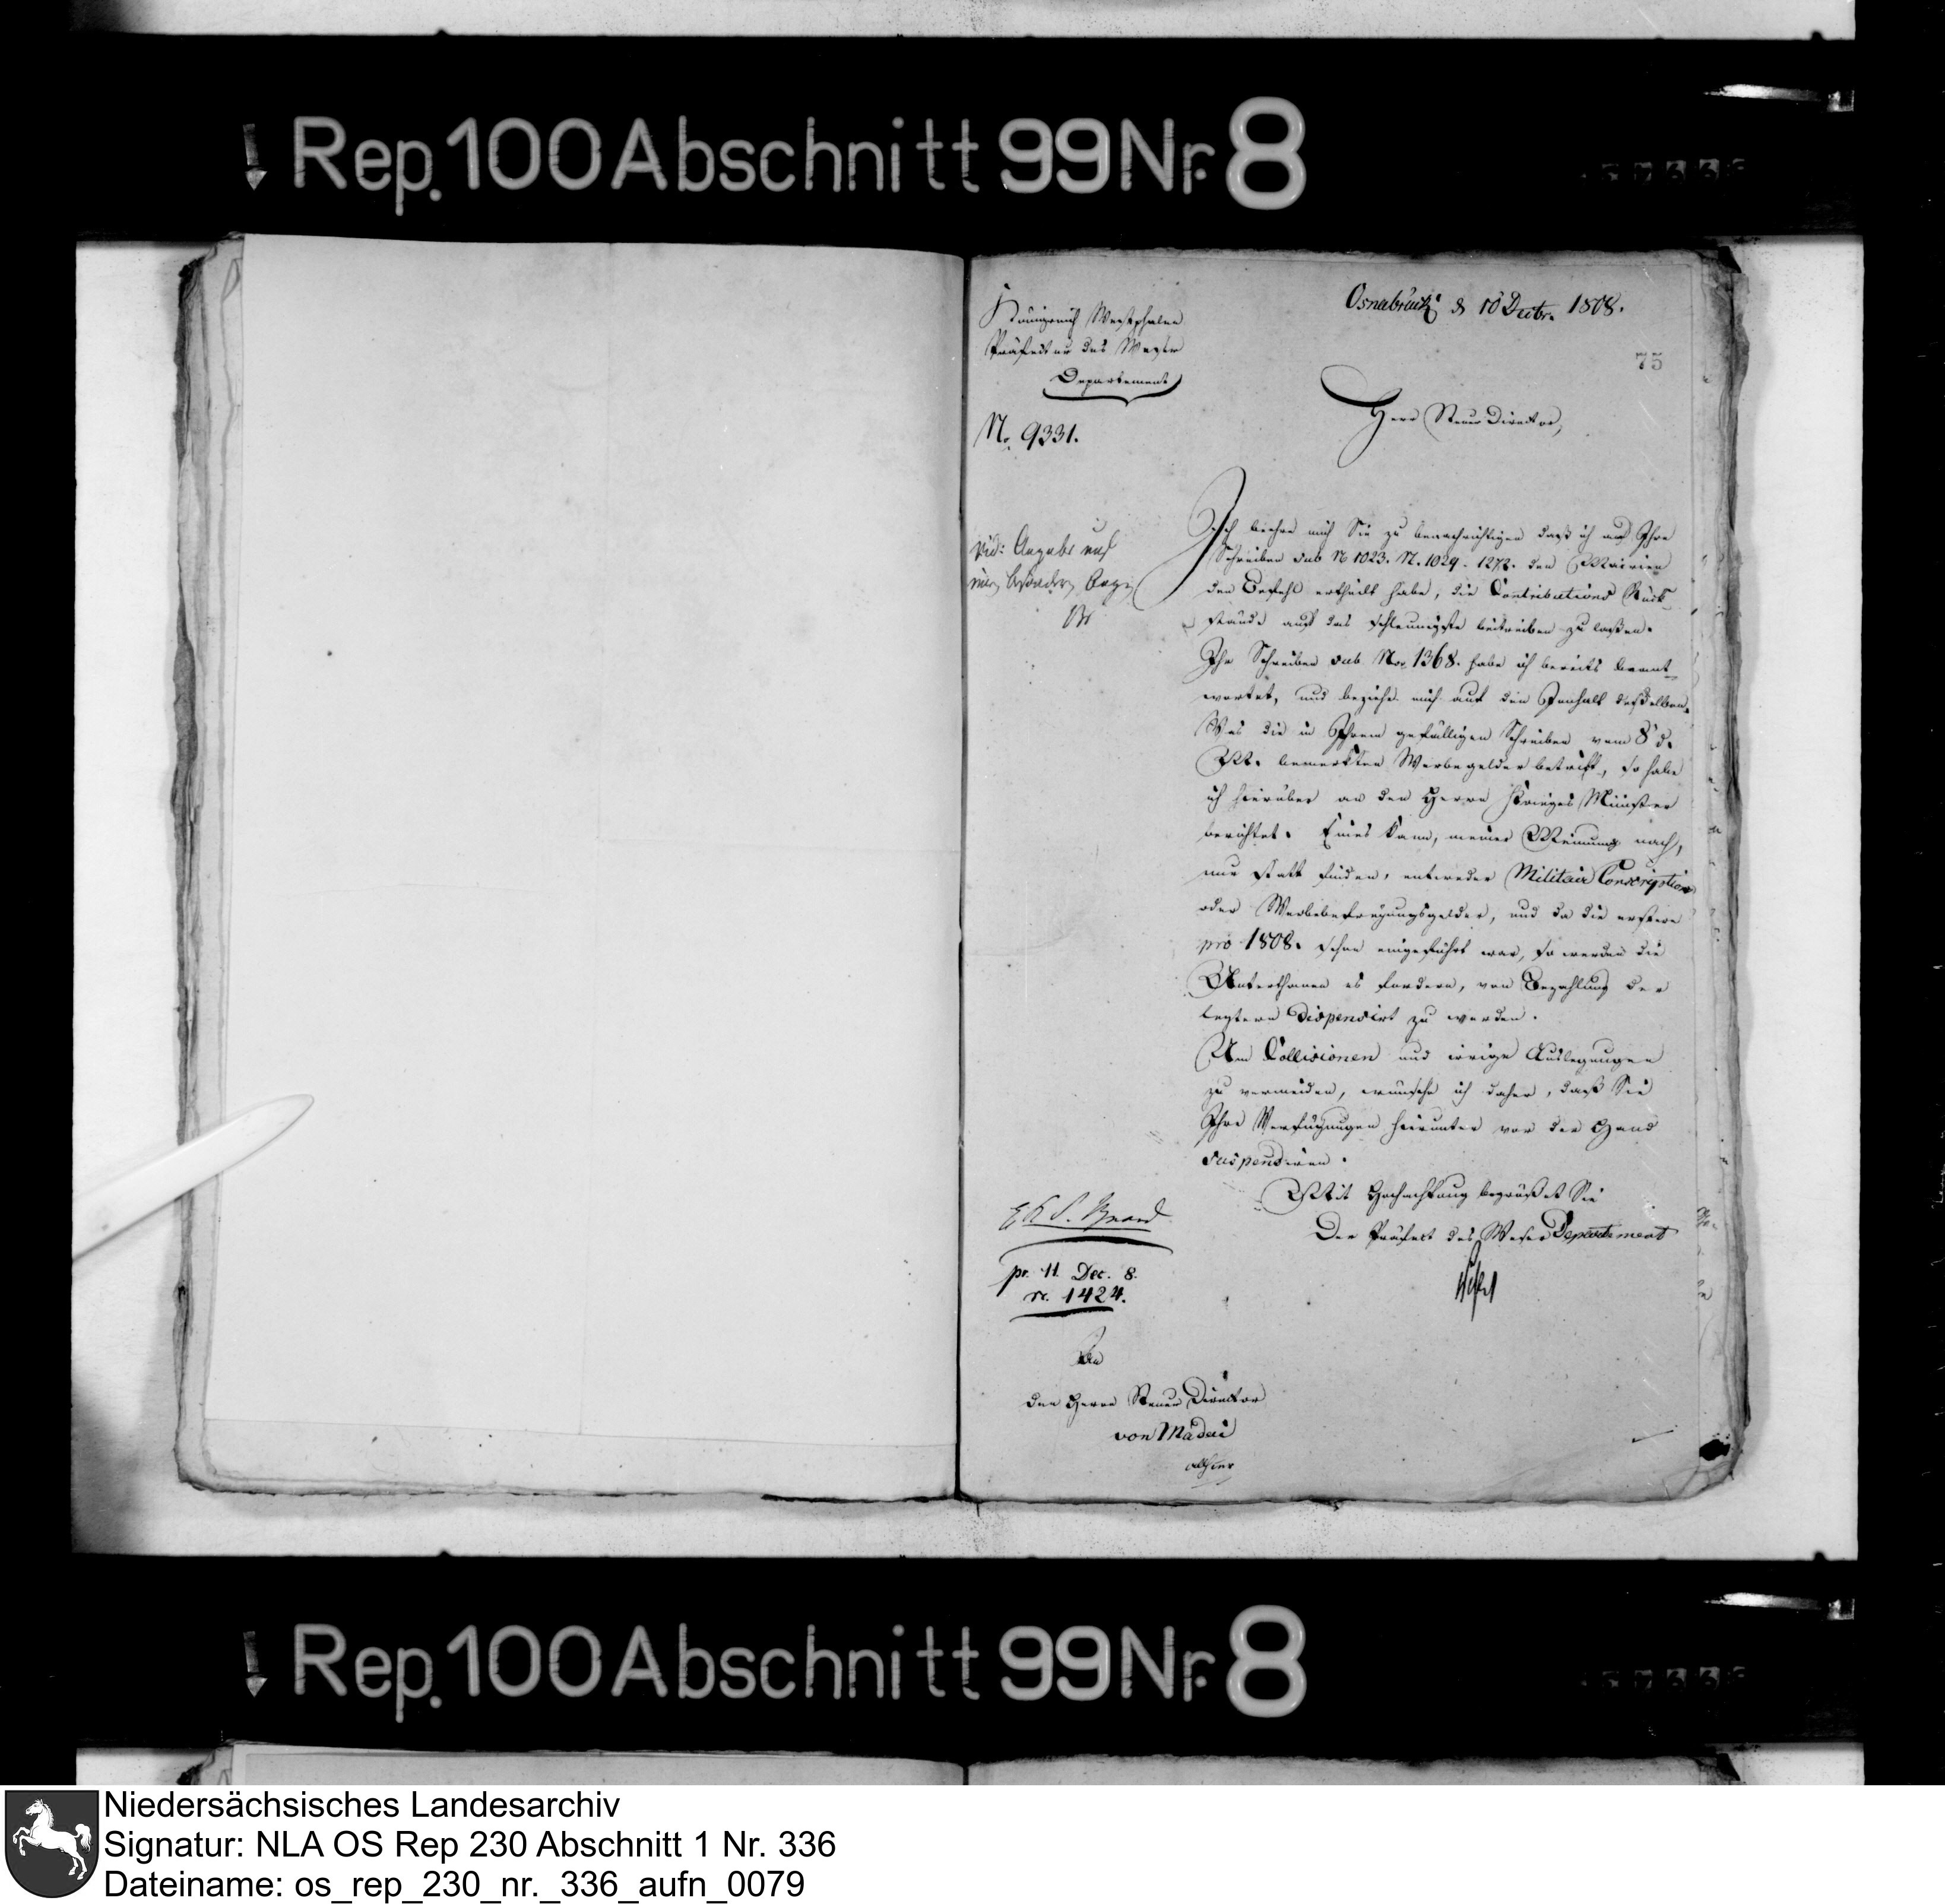 Rep. 100 Abschnitt 99 Nr. 8
Königreich Westphalen
Präfectur des Weser
Departement
No. 9331.
Osnabrück d 10 Decbr. 1808.
75
Herr Steuer Director,
Ich beehre mich Sie zu benachrichtigen daß ich auf Ihre
Schreiben sub N 1023. N. 1029. 1272. den Mairien
den Befehl ertheilt habe, die Contributions Rück-
stände auf das schleunigste beitreiben zu laßen.
Ihr Schreiben sub No. 1368. habe ich bereits beant-
wortet, und beziehe mich auf den Innhalt deßelben.
Was die in Ihrem gefälligen Schreiben vom 8 d.
M. bemerkten Werbegelder betrift, so habe
ich hierüber an den Herrn Krieges Minister
berichtet. Eines kann, meiner Meinung nach,
nur statt finden, entweder Militair Conscription
oder Werbebefreyungsgelder, und da die erstere
pro 1808. schon eingeführt war, so werden die
Unterthanen es fordern, von Bezahlung der
leztern dispensirt zu werden.
Um Collisionen und irrige Auslegungen
zu vermeiden, wünsche ich daher, daß Sie
Ihre Verfügungen hierunter vor der Hand
suspendiren.
Mit Hochachtung begrüßet Sie
Der Präfect des Weser Departement
vid: Angabe auf
pr. 11. Dec. 8.
n. 1424.
An
den Herrn Steuer Director
von Madai
allhier
Rep. 100 Abschnitt 99 Nr. 8
Niedersächsisches Landesarchiv
Signatur: NLA OS Rep 230 Abschnitt 1 Nr. 336
Dateiname: os_rep_230_nr._336_aufn_0079